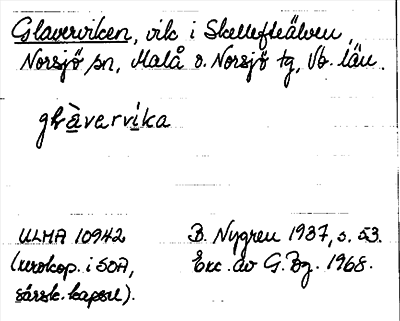 Glaverviken, vik i Skellefteälven,
Norsjö sn, Malå o. Norsjö tg, Vb. län.
glàvervika
ULMA 10942
(xerokop. i SOA,
särsk. kapsel).
B. Nygren 1937, s. 53.
Exc. av G. Bg. 1968.